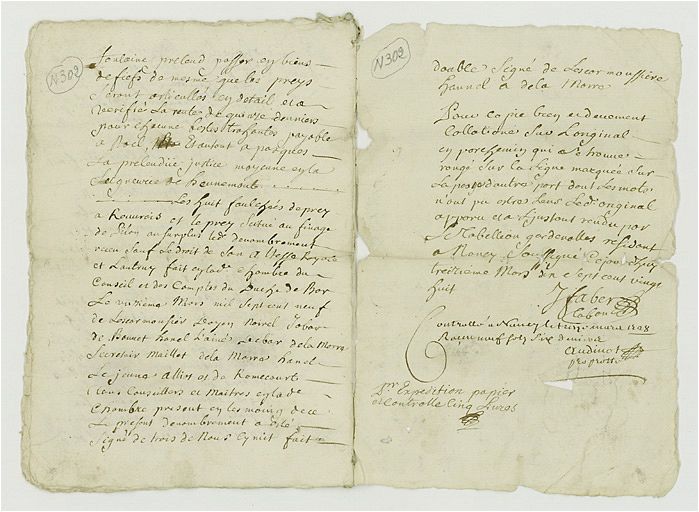 N 302
fontaine pretend passer en biens
de fiefs de mesme que les preys
seront articullés en detail et a
verifier la rente de quinze deniers
pour chacune payable
a Noel et autant a pasques
La pretendüe justice moyenne en la
seigneurie de hennemont
Les huit faulchées de prey
a et le prey scitué au finage
de au surplus led. denombrement
receu sauf le droit de Son Altesse Royale
et L'autruy fait en lad. Chambre du
Conseil et des Comptes du Duché de Bar
Le Mars mil sept cent neuf
de Lescarmoussier
de hanel Lebar de la Morre
Secretair Maillot de la Morre hanel
Le jeune Alliot et de Romecourt
tous Conseillers et Maitres en lad.
Chambre present en les moins de ce
Le present denombrement a esté
Signé de trois de Nous Ce fait
N 302
double Signé de Lescarmoussière
hannel et de la Morre
Pour copie bien et deuement
Collationé sur Loriginal
en parchemin qui a se trouve
rongé sur la ligne marquée sur
La d'autre part dont les mots
n'ont pu estre leus Led. original
apporté et a l'instant rendu par
Le Tabellion gardenottes residant
a Nancy Soussigné Cejourd'huy
treizieme Mars mil Sept cent vingt
huit
J Faber
Controllé a Nancy le treize mars 1728
Receu neuf sols six deniers
Audinot
Pr Expedition papier
et Controlle Cinq Livres